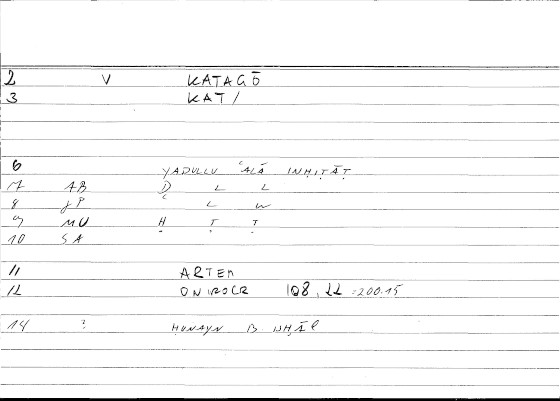 2 V KATAGŌ
3 KAT/
6 YADULLU ʿALĀ INḤIṬĀṬ
7 AB D L L
8 JP L W
9 MU Ḥ Ṭ Ṭ
10 SA
11 ARTEM
12 ONIROCR 108, 22 = 200.15
14 ? ḤUNAYN B.